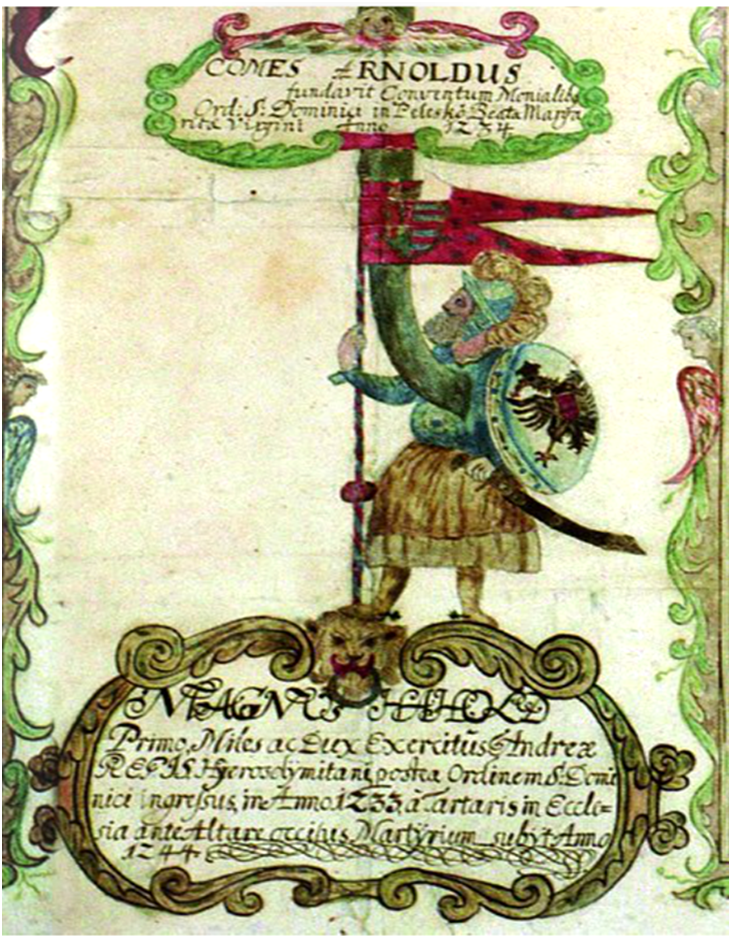 COMES ARNOLDUS
fundavit Conventum Monialibꝰ
Ord: S: Dominici in Peleskô Beata Marga
rita Virgini Anno 1234
MAGNUS HAHOLD
Primo, Miles ac Dux Exercitûs S Andreæ
REGIS Hyerosolymitani, postea Ordinem S. Domi
nici ingressus, in Anno 1233, à Tartaris in Eccle=
sia ante Altare occisus, Martÿrium subyt Anno
1244.